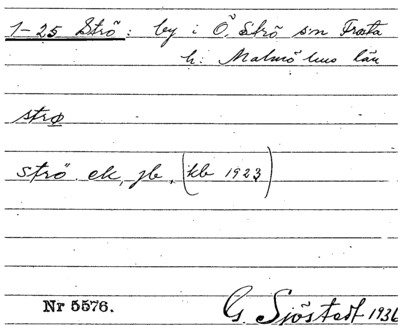 1-25 Strö: by i Ö. Strö sn Frosta
h. Malmöhus län
strø
strö ek, jb. (kb 1923)
Nr 5576.
G. Sjöstedt 1936